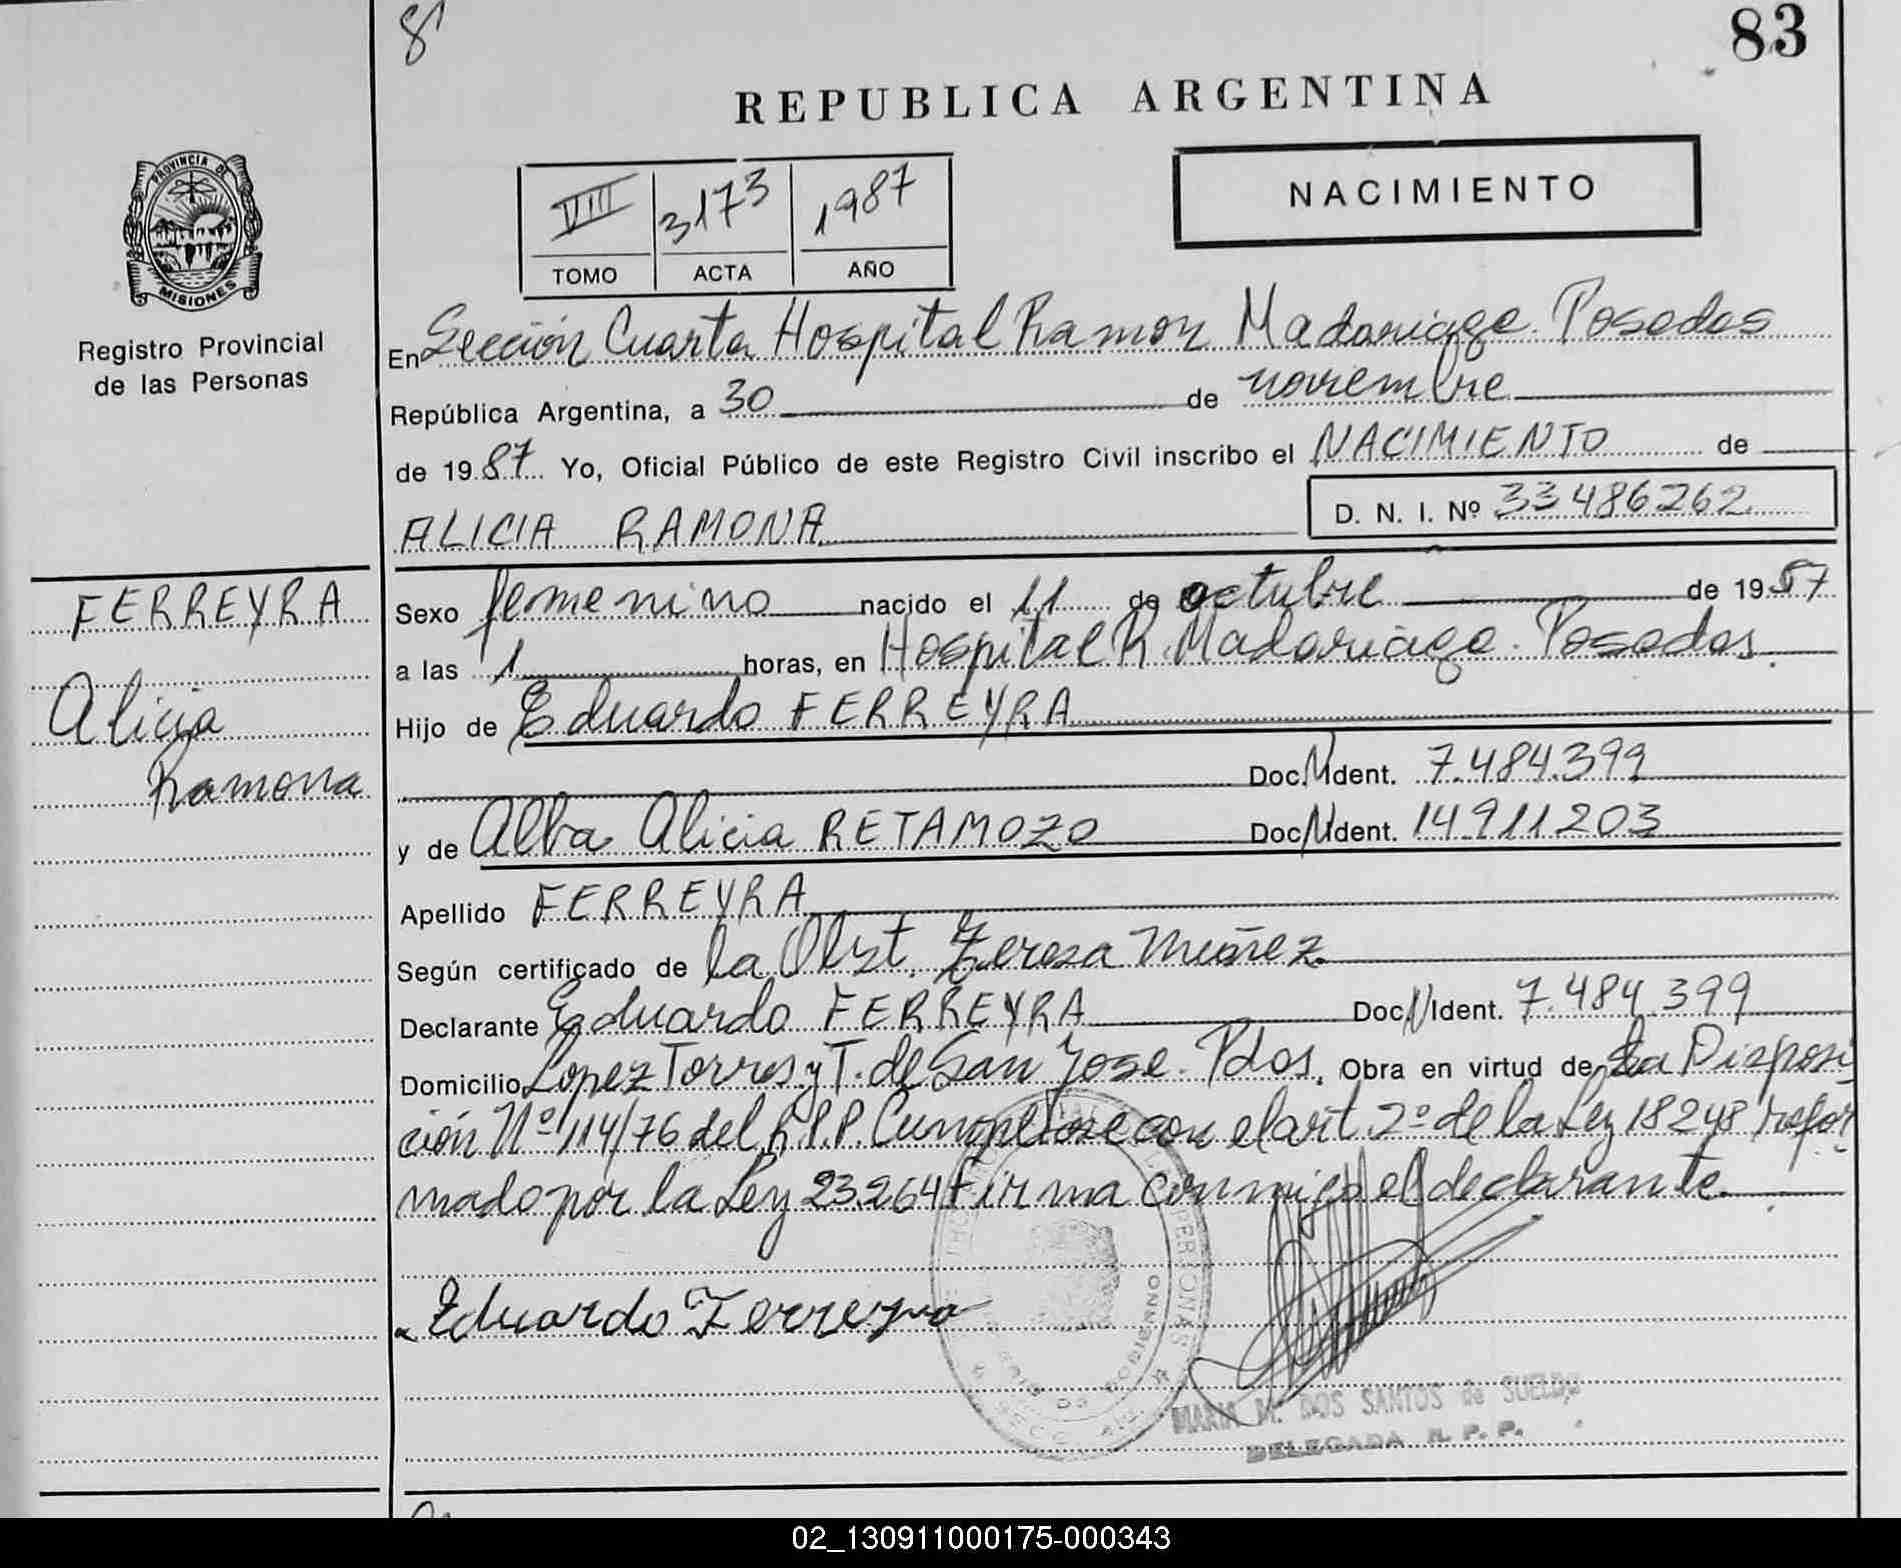 8
83
REPUBLICA ARGENTINA
PROVINCIA DE
MISIONES
Registro Provincial
de las Personas
VIII 3173 1987
TOMO ACTA AÑO
NACIMIENTO
En Sección Cuarta Hospital Ramon Madariaga. Posadas
República Argentina, a 30 de noviembre
de 1987 Yo, Oficial Público de este Registro Civil inscribo el NACIMIENTO de
ALICIA RAMONA D. N. I. Nº 33486262
FERREYRA
Alicia
Ramona
Sexo femenino nacido el 11 de octubre de 1987
a las 1 horas, en Hospital R. Madariaga. Posadas.
Hijo de Eduardo FERREYRA
Doc. N Ident. 7.484.399
y de Alba Alicia RETAMOZO Doc N Ident. 14.911.203
Apellido FERREYRA
Según certificado de la Obst. Teresa Muñez
Declarante Eduardo FERREYRA Doc N Ident. 7.484.399
Domicilio Lopez Torres y T. de San Jose. Pdos. Obra en virtud de la Disposi
ción Nº 114/76 del R.P.P. Cumpliose con el art. 2º de la Ley 18248 refor
mado por la Ley 23.264 firma conmigo el declarante.
Eduardo Ferreyra
MARIA M. DOS SANTOS de SUELDO
DELEGADA R. P. P.
02_130911000175-000343